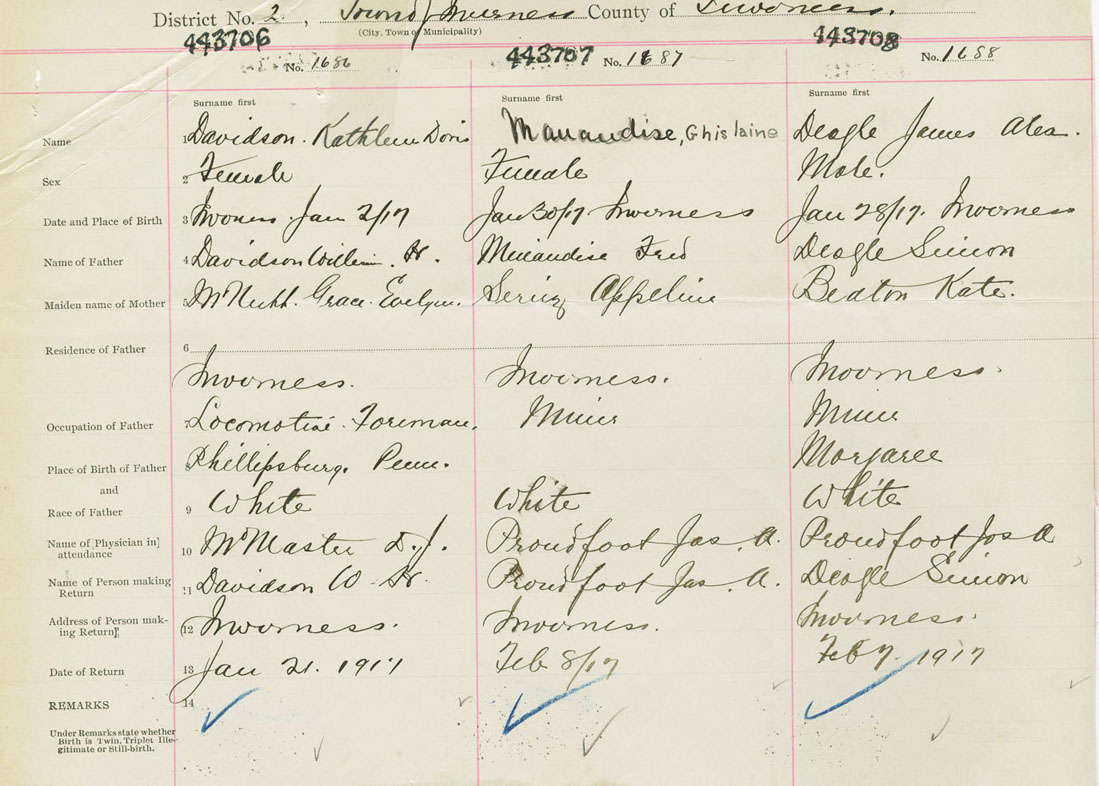 District No. 2, Town of Inverness County of Inverness.
(City, Town or Municipality)
443706 443707 443708
No. 1686 No. 1687 No. 1688
Surname first Surname first Surname first
Name 1 Davidson. Kathleen Doris Manandise, Ghislaine Deagle James Alex.
Sex 2 Female Female Male.
Date and Place of Birth 3 Inverness. Jan 2/17 Jan 30/17 Inverness Jan 28/17. Inverness
Name of Father 4 Davidson William H. Minandise Fred Deagle Simon
Maiden name of Mother 5 Grace Evelyn. Appeline Beaton Kate.
Residence of Father 6
Inverness. Inverness. Inverness.
Occupation of Father 7 Locomotive. Foreman. Miner Miner
Place of Birth of Father 8 Phillipsburg, Penn. Margaree
and
Race of Father 9 White White White
Name of Physician in attendance 10 McMaster D.J. Proudfoot Jas. A. Proudfoot Jas A
Name of Person making Return 11 Davidson W. H. Proudfoot Jas. A. Deagle Simon
Address of Person making Return 12 Inverness. Inverness. Inverness.
Date of Return 13 Jan 21. 1917 Feb 8/17 Feb 7. 1917
REMARKS 14
Under Remarks state whether
Birth is Twin, Triplet Ille-
gitimate or Still-birth.